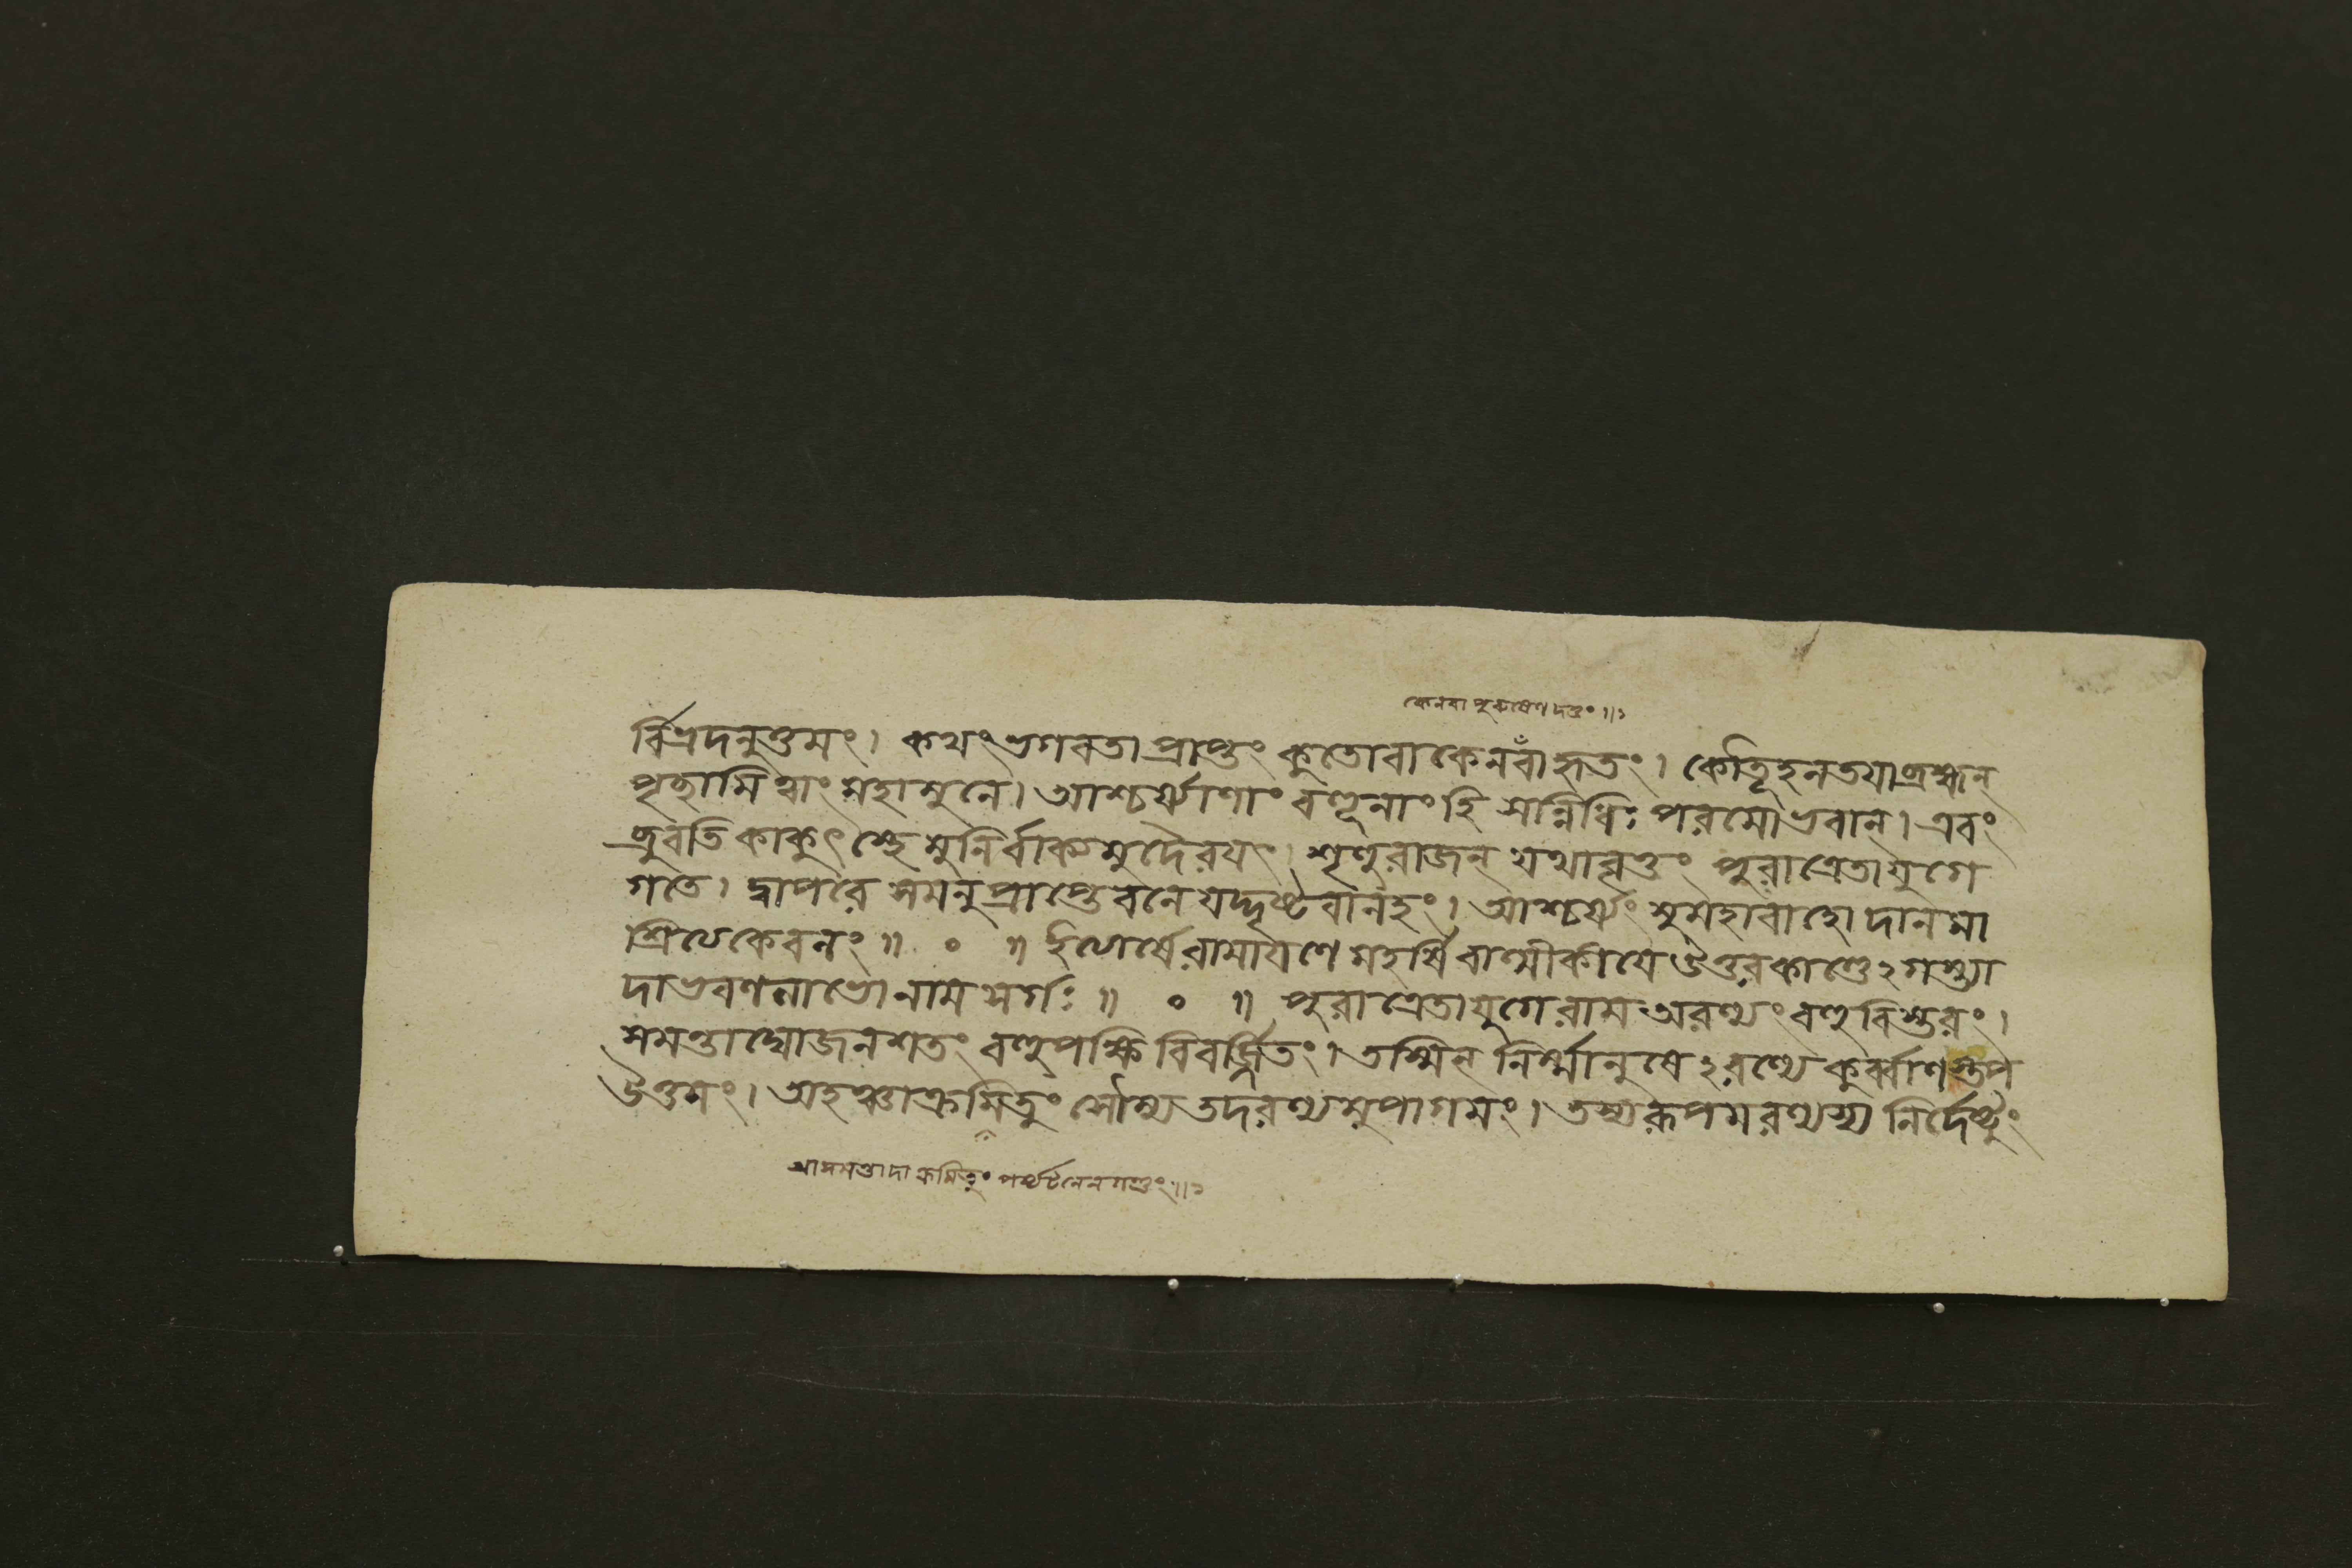 কেনবা পুরুষেণ দত্তং ॥১
র্বিপ্রদনুত্তমং। কথং ভগবতা প্রাপ্তং কুতোবা কেনবাঁ হৃতং। কৌতূহলতয়া ব্রহ্মন্
পৃচ্ছামি ত্বাং মহামুনে। আশ্চর্য্যাণাং বহূনাং হি সন্নিধিঃ পরমো ভবান্। এবং
ব্রুবতি কাকুৎস্থে মুনির্বাক্যমুদৈরয়ৎ। শৃণুরাজন্ যথাবৃত্তং পুরা ত্রেতাযুগে
গতে। দ্বাপরে সমনুপ্রাপ্তে বনে যদ্দৃষ্টবানহং। আশ্চর্য্যং সুমহাবাহো দানমা
শ্রিত্য কেবলং ॥ ০ ॥ ইত্যার্ষে রামায়ণে মহর্ষি বাল্মীকীয়ে উত্তরকাণ্ডে ঽগস্ত্যা
দাভরণলাভো নাম সর্গঃ ॥ ০ ॥ পুরা ত্রেতাযুগে রাম অরণ্যং বহুবিস্তরং।
সমন্তাদ্যোজনশতং বহুপক্ষি বিবর্জ্জিতং। তস্মিন্ নির্ম্মানুষে ঽরণ্যে কুর্ব্বাণস্তপ
উত্তমং। অহঞ্চাক্রমিতুং সৌম্য তদরণ্যমুপাগমং। তস্যরূপমরণ্যস্য নির্দেষ্টুং
আসমন্তাদাক্রমিতুং পর্য্যটনেন গন্তুং ॥১